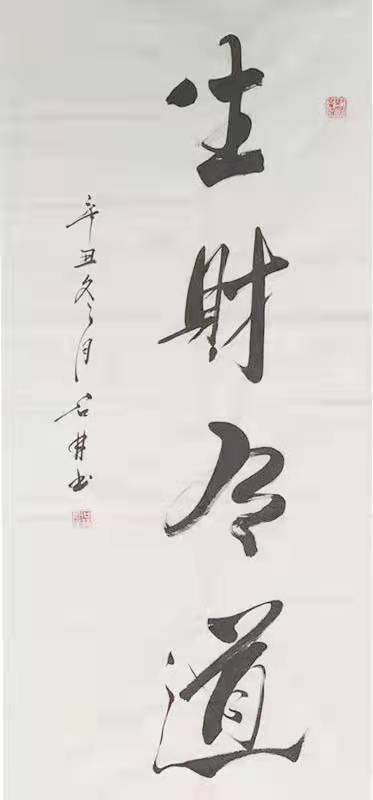 生財合道
辛丑冬月石书